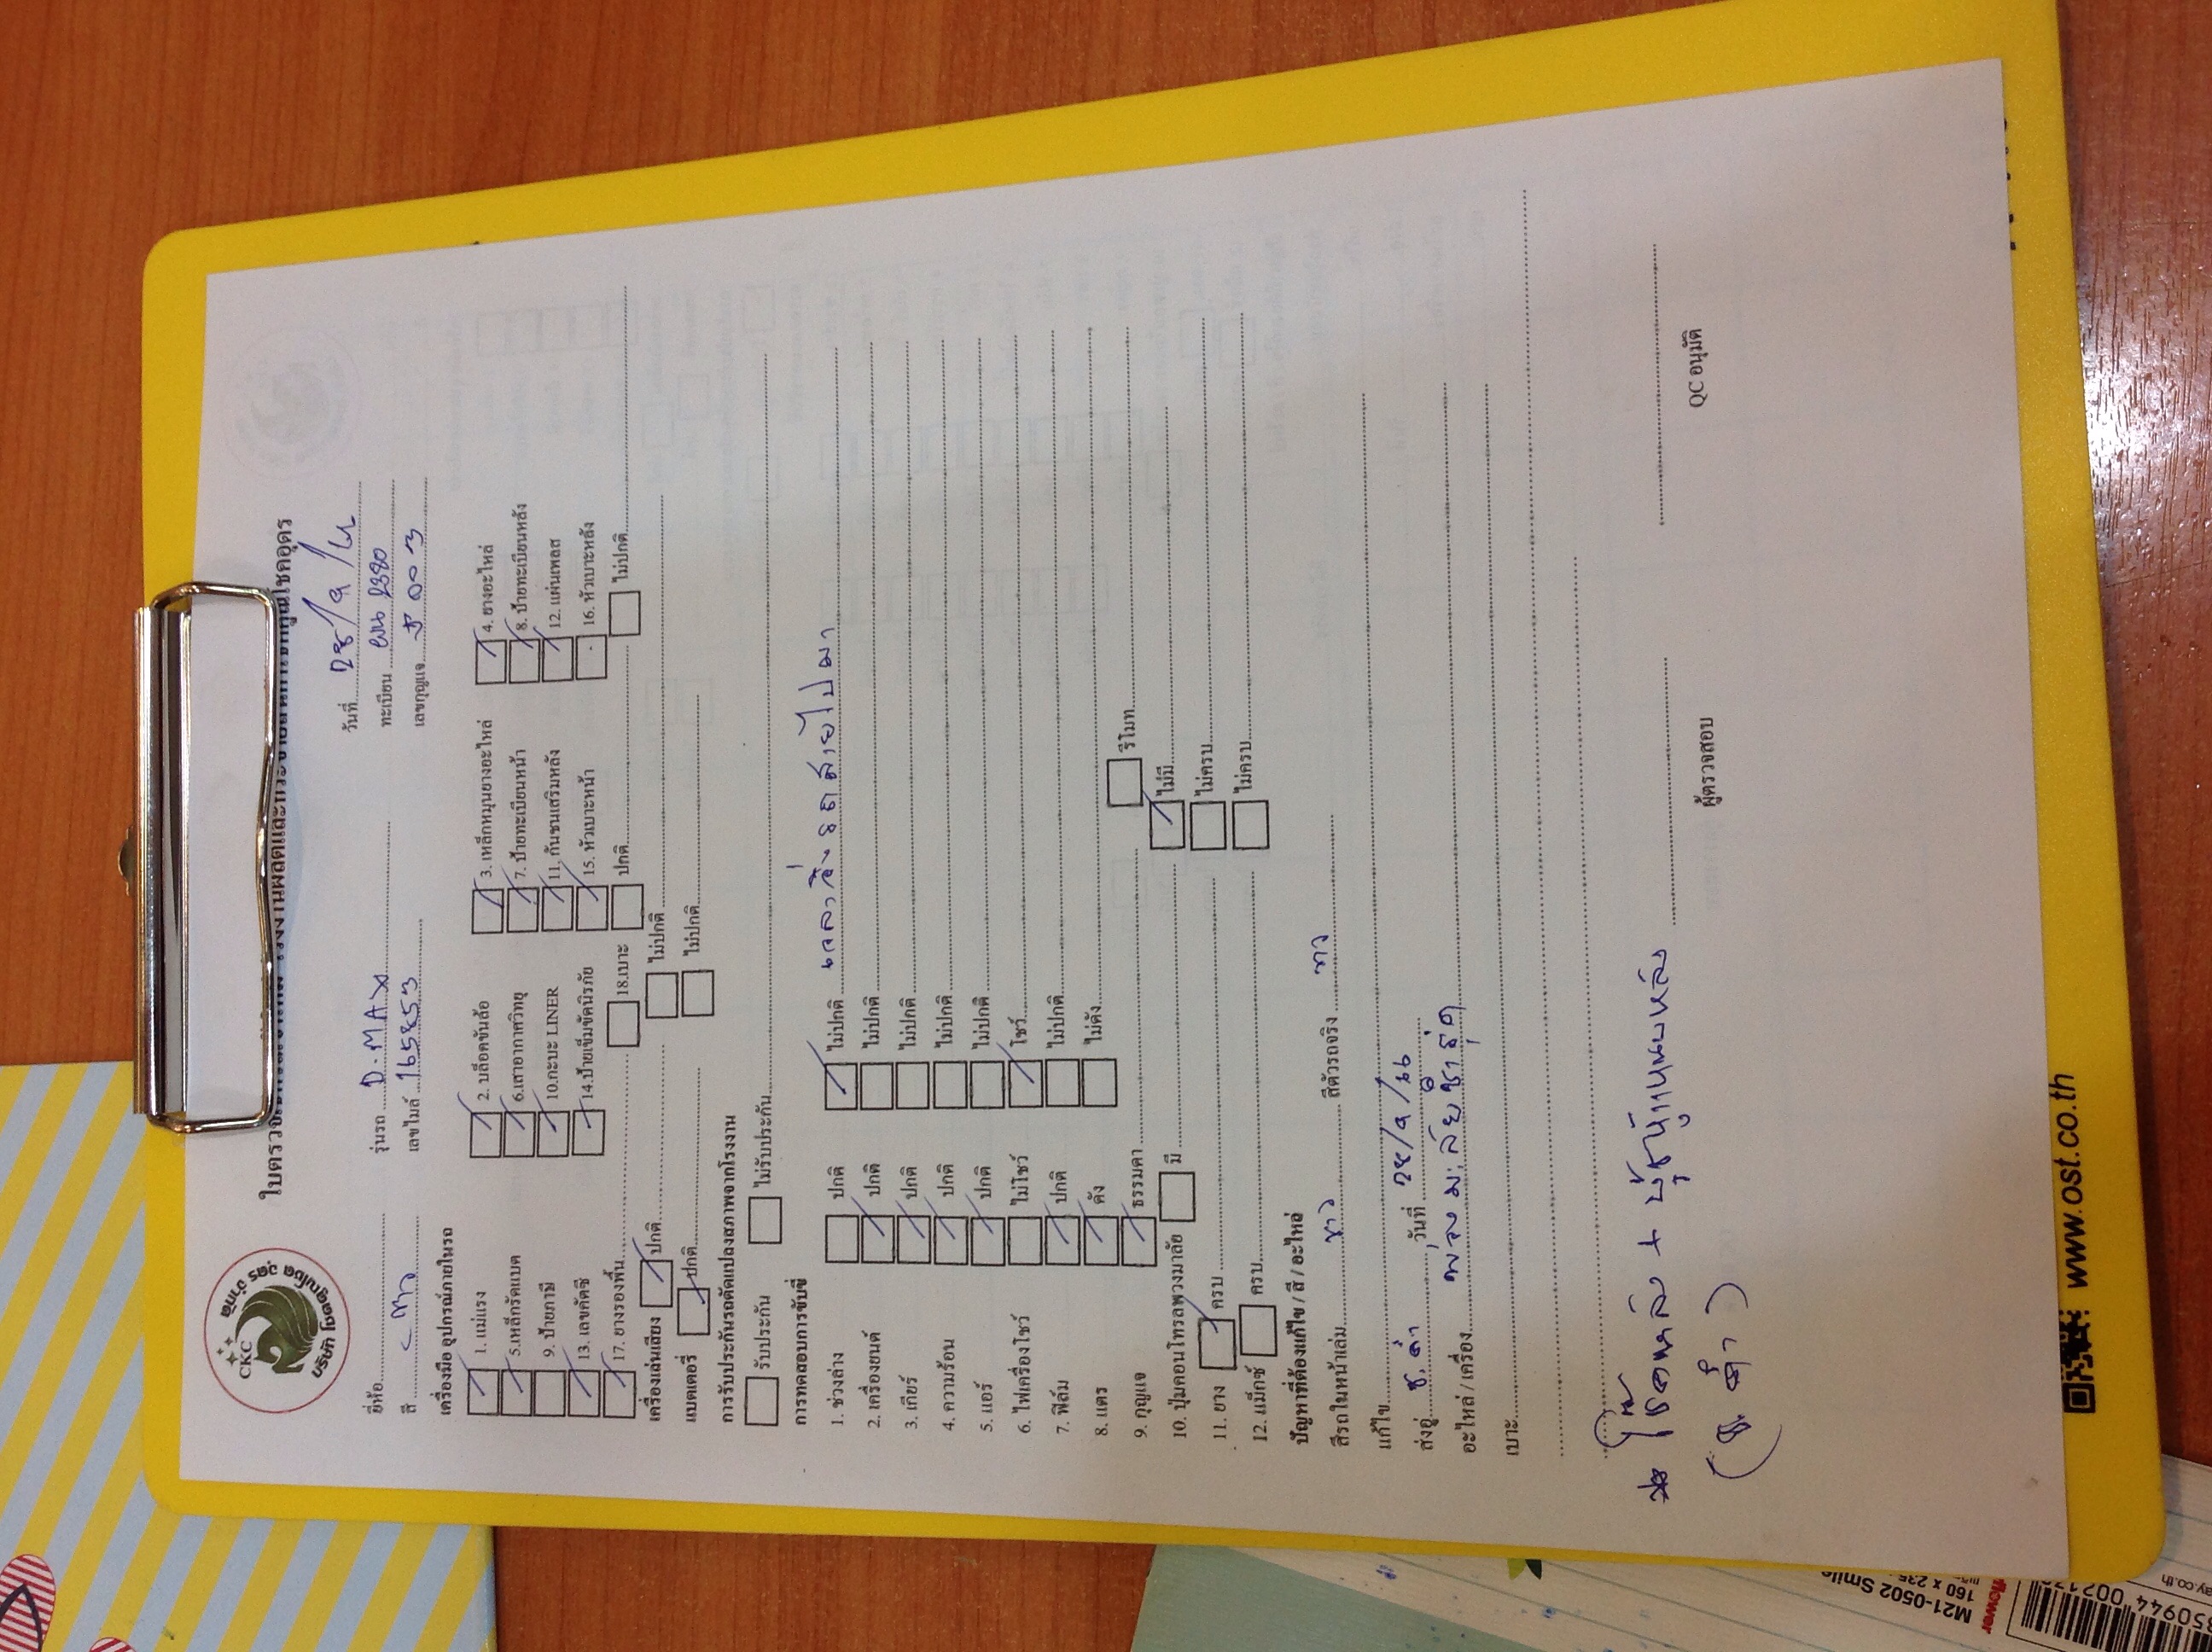 CKC
บริษัท โชคคูณโชค อุดร จำกัด
วันที่ 28/9/
ยี่ห้อ รุ่นรถ D.MAX ทะเบียน 2380
สี เลขไมล์ 165853 เลขกุญแจ
เครื่องมือ อุปกรณ์ภายในรถ
1. แม่แรง 2. บล็อคขันล้อ 3. เหล็กหมุนยางอะไหล่ 4. ยางอะไหล่
5.เหล็กรัดแบต 6.เสาอากาศวิทยุ 7. ป้ายทะเบียนหน้า 8. ป้ายทะเบียนหลัง
9. ป้ายภาษี 10.กะบะ LINER 11. กันชนเสริมหลัง 12. แผ่นเพลส
13. เลขคัตซี 14.ป้ายเข็มขัดนิรภัย 15. หัวเบาะหน้า 16. หัวเบาะหลัง
17. ยางรองพื้น 18.เบาะ ปกติ ไม่ปกติ
เครื่องเล่นเสียง ปกติ ไม่ปกติ
แบตเตอรี่ ปกติ ไม่ปกติ
การรับประกันรถดัดแปลงสภาพจากโรงงาน
รับประกัน ไม่รับประกัน
การทดสอบการขับขี่
1. ช่วงล่าง ปกติ ไม่ปกติ เวลาวิ่งรถส่ายไปมา
2. เครื่องยนต์ ปกติ ไม่ปกติ
3. เกียร์ ปกติ ไม่ปกติ
4. ความร้อน ปกติ ไม่ปกติ
5. แอร์ ปกติ ไม่ปกติ
6. ไฟเครื่องโชว์ ไม่โชว์ โชว์
7. ฟิล์ม ปกติ ไม่ปกติ
8. แตร ดัง ไม่ดัง
9. กุญแจ ธรรมดา รีโมท
10. ปุ่มคอนโทรลพวงมาลัย มี ไม่มี
11. ยาง ครบ ไม่ครบ
12. แม็กซ์ ครบ ไม่ครบ
ปัญหาที่ต้องแก้ไข / สี / อะไหล่
สีรถในหน้าเล่ม ขาว สีตัวรถจริง
แก้ไข
ส่งอู่ ช.ดำ วันที่ 28/9/
อะไหล่ / เครื่อง พวงมาลัยชำรุด
เบาะ
* โช๊คหลัง + บู๊ชหูแหนบหลัง
(ช.ดำ)
ผู้ตรวจสอบ QC อนุมัติ
www.ost.co.th
M21-0502 Smile